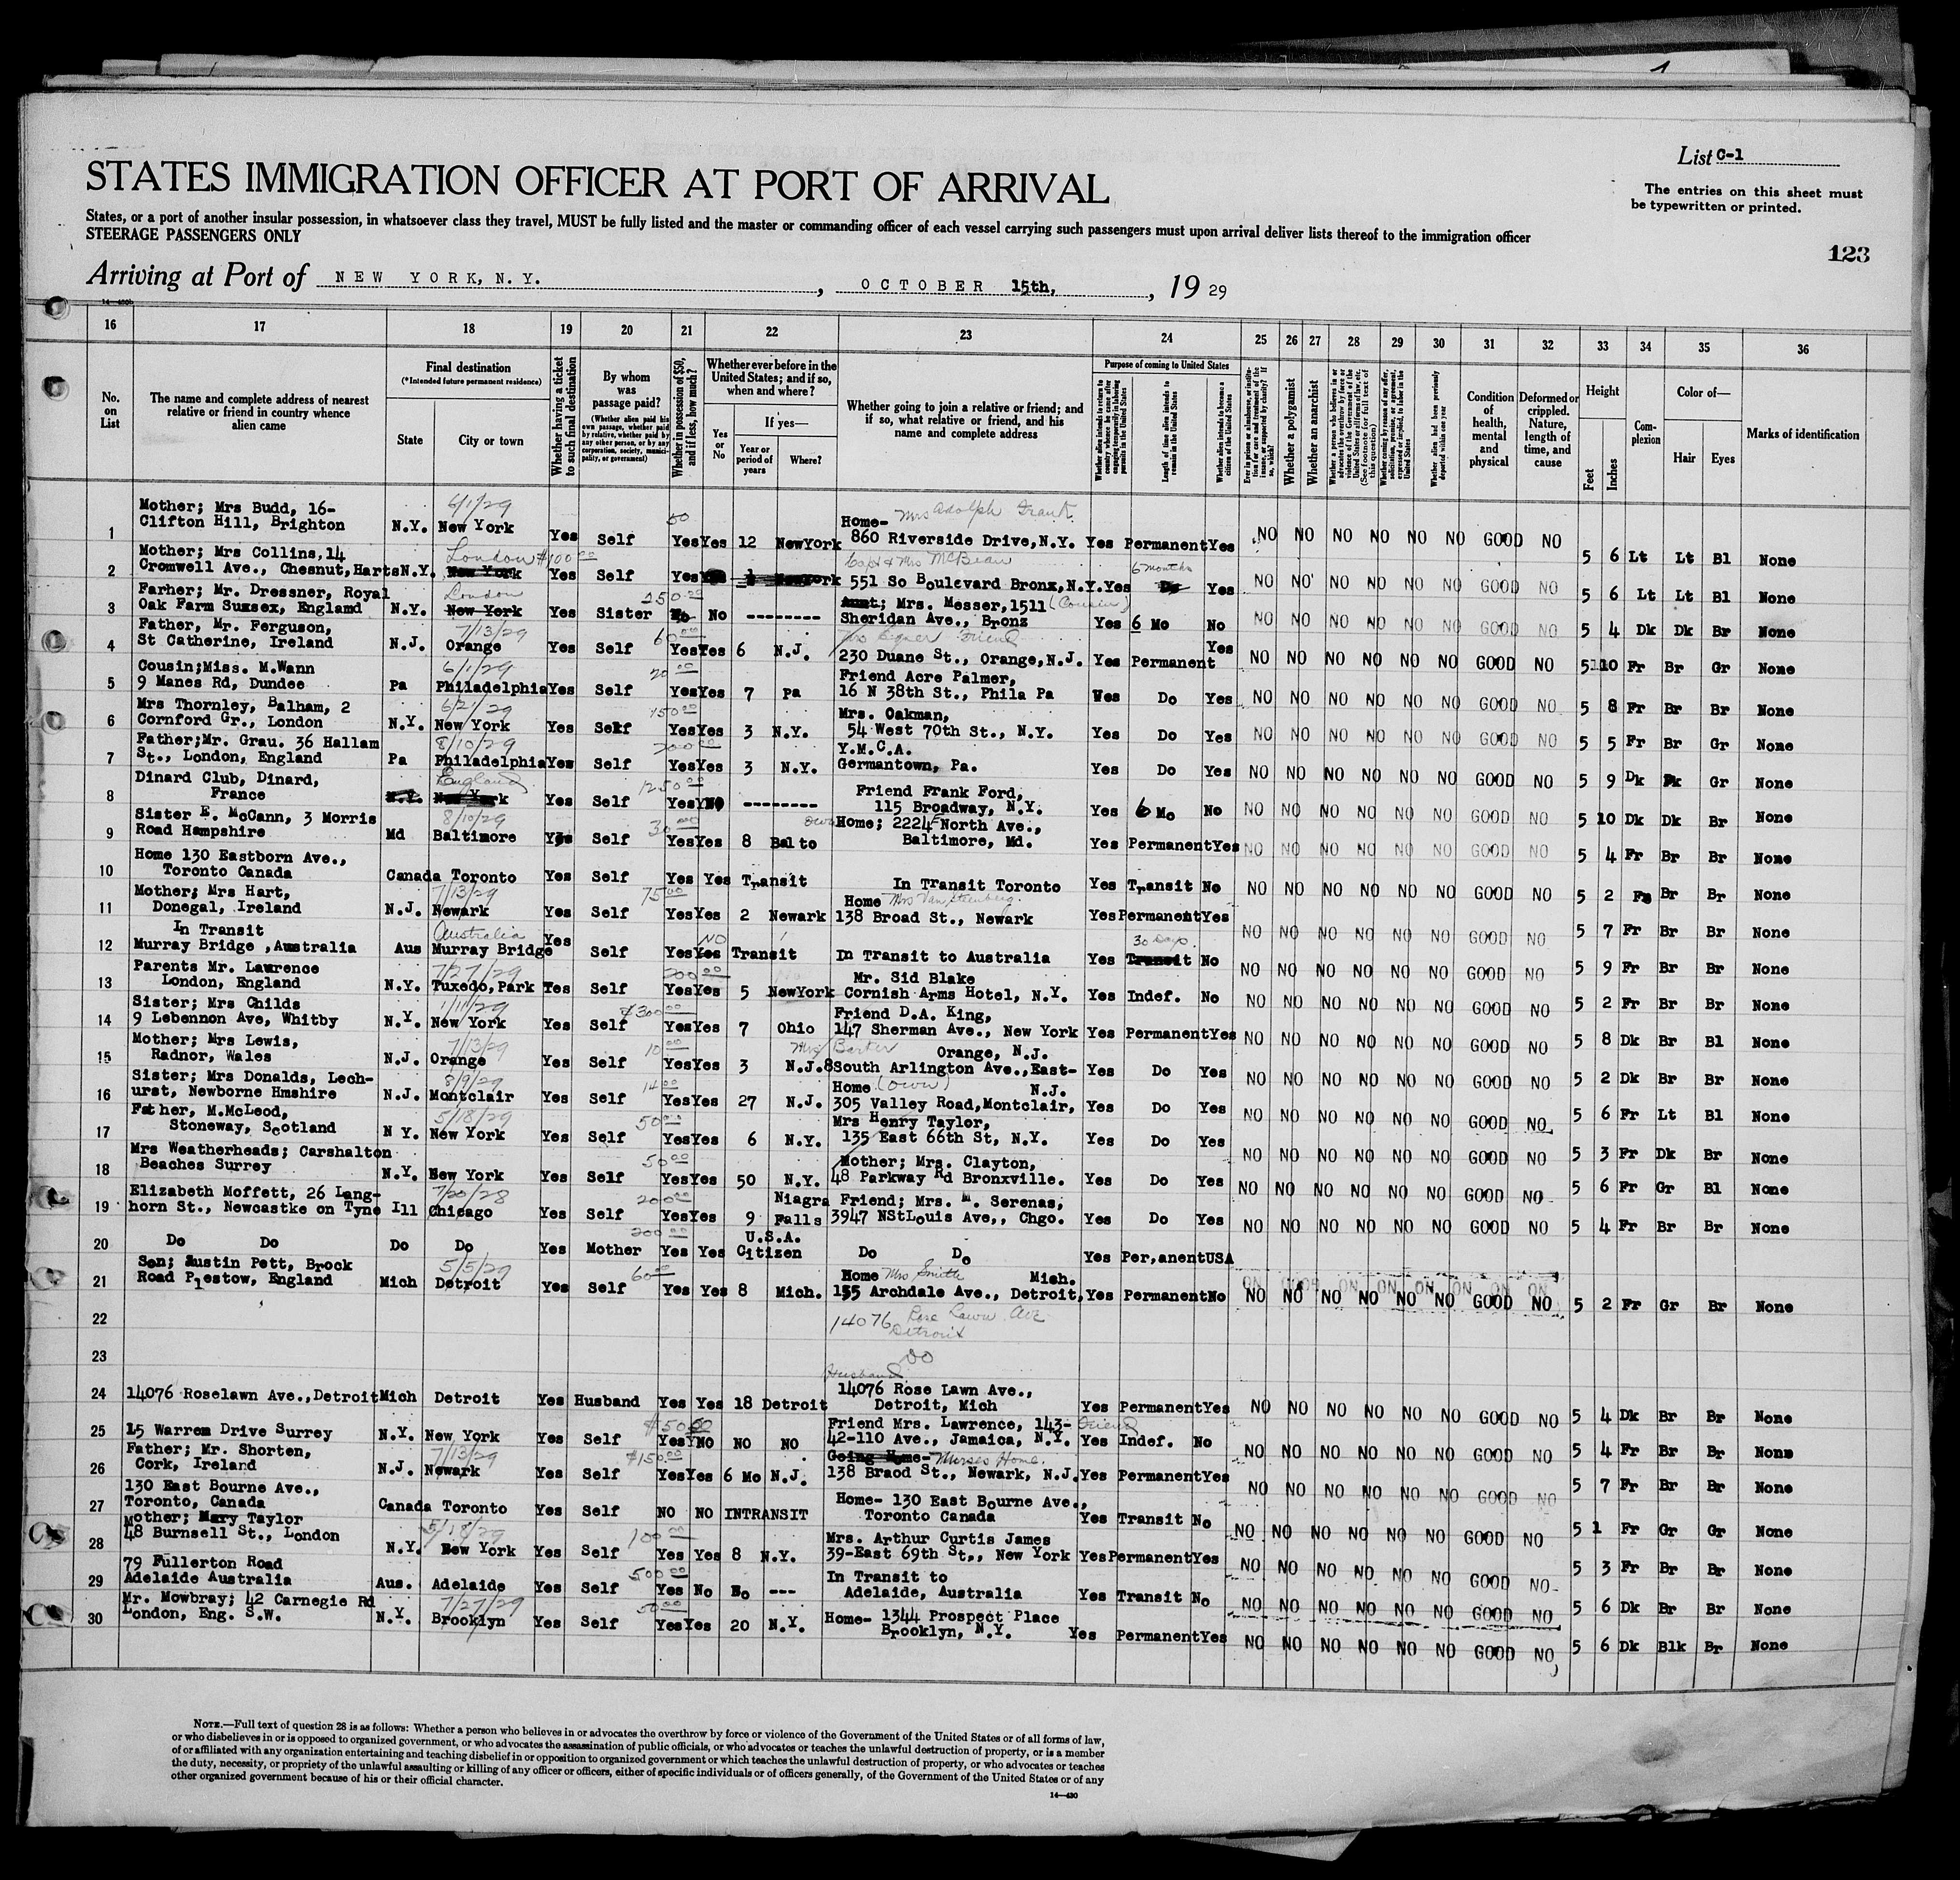 List C-1
STATES IMMIGRATION OFFICER AT PORT OF ARRIVAL
The entries on this sheet must
be typewritten or printed.
States, or a port of another insular possession, in whatsoever class they travel, MUST be fully listed and the master or commanding officer of each vessel carrying such passengers must upon arrival deliver lists thereof to the immigration officer
STEERAGE PASSENGERS ONLY
123
Arriving at Port of NEW YORK, N.Y., OCTOBER 15th, 19 29
16 17 18 19 20 21 22 23 24 25 26 27 28 29 30 31 32 33 34 35 36
No. on List
The name and complete address of nearest relative or friend in country whence alien came
Final destination
(*Intended future permanent residence)
State
City or town
Whether having a ticket to such final destination
By whom was passage paid?
(Whether alien paid his own passage, whether paid by relative, whether paid by any other person, or by any corporation, society, municipality, or government)
Whether in possession of $50, and if less, how much?
Whether ever before in the United States; and if so, when and where?
Yes or No
If yes—
Year or period of years
Where?
Whether going to join a relative or friend; and if so, what relative or friend, and his name and complete address
Purpose of coming to United States
Length of time alien intends to remain in the United States
Whether alien intends to become a citizen of the United States
Whether a polygamist
Whether an anarchist
Condition of health, mental and physical
Deformed or crippled. Nature, length of time, and cause
Height
Feet
Inches
Complexion
Color of—
Hair
Eyes
Marks of identification
1 Mother; Mrs Budd, 16-
Clifton Hill, Brighton N.Y. New York 6/1/29 Yes Self 50 Yes Yes 12 NewYork Home- Mrs Adolph
860 Riverside Drive, N.Y. Yes Permanent Yes NO NO NO NO NO NO GOOD NO 5 6 Lt Lt Bl None
2 Mother; Mrs Collins,14
Cromwell Ave., Chesnut,Harts N.Y. London New York $100 00 Yes Self Yes Capt & Mrs McBean
551 So Boulevard Bronx,N.Y. Yes 6 months Do Yes NO NO NO NO NO NO GOOD NO 5 6 Lt Lt Bl None
3 Farher; Mr. Dressner, Royal
Oak Farm Sussex, England N.Y. London New York Yes Sister 250 No -------- Aunt; Mrs. Messer,1511 (Cousin)
Sheridan Ave., Bronz Yes 6 Mo No NO NO NO NO NO NO GOOD NO 5 4 Dk Dk Br None
4 Father, Mr. Ferguson,
St Catherine, Ireland N.J. Orange 7/13/29 Yes Self 60 Yes Yes 6 N.J. Friend
230 Duane St., Orange,N.J. Yes Permanent Yes NO NO NO NO NO NO GOOD NO 5 10 Fr Br Gr None
5 Cousin;Miss. M.Wann
9 Manes Rd, Dundee Pa Philadelphia 6/1/29 Yes Self 20 00 Yes Yes 7 Pa Friend Acre Palmer,
16 N 38th St., Phila Pa Wes Do Yes NO NO NO NO NO NO GOOD NO 5 8 Fr Br Br None
6 Mrs Thornley, Balham, 2
Cornford Gr., London N.Y. New York 6/21/29 Yes Self 150 00 Yes Yes 3 N.Y. Mrs. Oakman,
54 West 70th St., N.Y. Yes Do Yes NO NO NO NO NO NO GOOD NO 5 5 Fr Br Gr None
7 Father;Mr. Grau. 36 Hallam
St., London, England Pa Philadelphia 8/10/29 Yes Self 200 00 Yes Yes 3 N.Y. Y.M.C.A.
Germantown, Pa. Yes Do Yes NO NO NO NO NO NO GOOD NO 5 9 Dk Dk Gr None
8 Dinard Club, Dinard,
France N.Y. England New York Yes Self 1250 00 Yes NO -------- Friend Frank Ford,
115 Broadway, N.Y. Yes 6 Mo No NO NO NO NO NO NO GOOD NO 5 10 Dk Dk Br None
9 Sister E. McCann, 3 Morris
Road Hampshire Md Baltimore 8/10/29 Yes Self 30 00 Yes Yes 8 Balto own Home; 2224 North Ave.,
Baltimore, Md. Yes Permanent Yes NO NO NO NO NO NO GOOD NO 5 4 Fr Br Br None
10 Home 130 Eastborn Ave.,
Toronto Canada Canada Toronto Yes Self Yes Yes Transit In Transit Toronto Yes Transit No NO NO NO NO NO NO GOOD NO 5 2 Fr Br Br None
11 Mother; Mrs Hart,
Donegal, Ireland N.J. Newark 7/13/29 Yes Self 75 00 Yes Yes 2 Newark Home Mrs
138 Broad St., Newark Yes Permanent Yes NO NO NO NO NO NO GOOD NO 5 7 Fr Br Br None
12 In Transit
Murray Bridge ,Australia Aus Australia Murray Bridge Yes Self Yes NO Yes Transit In Transit to Australia Yes 30 Days Transit No NO NO NO NO NO NO GOOD NO 5 9 Fr Br Br None
13 Parents Mr. Lawrence
London, England N.Y. Tuxedo,Park 7/27/29 Tes Self 200 00 Yes Yes 5 NewYork Mr. Sid Blake
Cornish Arms Hotel, N.Y. Yes Indef. No NO NO NO NO NO NO GOOD NO 5 2 Fr Br Br None
14 Sister; Mrs Childs
9 Lebennon Ave, Whitby N.Y. New York 1/11/29 Yes Self $300 00 Yes Yes 7 Ohio Friend D.A. King,
147 Sherman Ave., New York Yes Permanent Yes NO NO NO NO NO NO GOOD NO 5 8 Dk Br Bl None
15 Mother; Mrs Lewis,
Radnor, Wales N.J. Orange 7/13/29 Yes Self 10 00 Yes Yes 3 N.J. Mrs Barker Orange, N.J.
8South Arlington Ave.,East- Yes Do Yes NO NO NO NO NO NO GOOD NO 5 2 Dk Br Br None
16 Sister; Mrs Donalds, Lech-
urst, Newborne Hmshire N.J. Montclair 8/9/29 Yes Self 14 00 Yes Yes 27 N.J. Home (own) N.J.
305 Valley Road,Montclair, Yes Do Yes NO NO NO NO NO NO GOOD NO 5 6 Fr Lt Bl None
17 Father, M.McLeod,
Stoneway, Scotland N Y. New York 5/18/29 Yes Self 50 00 Yes Yes 6 N.Y. Mrs Henry Taylor,
135 East 66th St, N.Y. Yes Do Yes NO NO NO NO NO NO GOOD NO 5 3 Fr Dk Br None
18 Mrs Weatherheads; Carshalton
Beaches Surrey N.Y. New York Yes Self 50 00 Yes Yes 50 N.Y. Mother; Mrs. Clayton,
48 Parkway Rd Bronxville. Yes Do Yes NO NO NO NO NO NO GOOD NO 5 6 Fr Gr Bl None
19 Elizabeth Moffett, 26 Lang-
horn St., Newcastke on Tyne Ill Chicago 7/20/28 Yes Self 200 00 Yes Yes 9 Niagra Falls Friend; Mrs. M. Serenas,
3947 NStLouis Ave,, Chgo. Yes Do Yes NO NO NO NO NO NO GOOD NO 5 4 Fr Br Br None
20 Do Do Do Do Yes Mother 200 00 Yes Yes U.S.A. Citizen Do Do Yes Per,anent USA
21 Son; Austin Pett, Brock
Road Plestow, England Mich Detroit 5/5/29 Yes Self 60 00 Yes Yes 8 Mich. Home Mrs Smith Mich.
155 Archdale Ave., Detroit, Yes Permanent No NO NO NO NO NO NO GOOD NO 5 2 Fr Gr Br None
22 14076 Rose Lawn Ave
Detroit
23 DO
24 14076 Roselawn Ave.,Detroit Mich Detroit Yes Husband Yes Yes 18 Detroit Husband
14076 Rose Lawn Ave.,
Detroit, Mich Yes Permanent Yes NO NO NO NO NO NO GOOD NO 5 4 Dk Br Br None
25 15 Warrem Drive Surrey N.Y. New York Yes Self $50 00 Yes NO NO NO Friend Mrs. Lawrence, 143- friend
42-110 Ave., Jamaica, N.Y. Yes Indef. No NO NO NO NO NO NO GOOD NO 5 4 Fr Br Br None
26 Father; Mr. Shorten,
Cork, Ireland N.J. Newark 7/13/29 Yes Self $150 00 Yes Yes 6 Mo N.J. Going Home- Nurses Home.
138 Braod St., Newark, N.J. Yes Permanent Yes NO NO NO NO NO NO GOOD NO 5 7 Fr Br Br None
27 130 East Bourne Ave.,
Toronto, Canada Canada Toronto Yes Self NO NO INTRANSIT Home- 130 East Bourne Ave.,
Toronto Canada Yes Transit No NO NO NO NO NO NO GOOD NO 5 1 Fr Gr Gr None
28 Mother; Mary Taylor
48 Burnsell St., London N.Y. New York 5/18/29 Yes Self 100 00 Yes Yes 8 N.Y. Mrs. Arthur Curtis James
39-East 69th St,, New York Yes Permanent Yes NO NO NO NO NO NO GOOD NO 5 3 Fr Br Br None
29 79 Fullerton Road
Adelaide Australia Aus. Adelaide Yes Self 500 00 Yes No No --- In Transit to
Adelaide, Australia Yes Transit No NO NO NO NO NO NO GOOD NO 5 6 Dk Br Br None
30 Mr. Mowbray; 42 Carnegie Rd
London, Eng. S.W. N.Y. Brooklyn 7/27/29 Yes Self 50 00 Yes Yes 20 N.Y. Home- 1344 Prospect Place
Brooklyn, N.Y. Yes Permanent Yes NO NO NO NO NO NO GOOD NO 5 6 Dk Blk Br None
NOTE.—Full text of question 28 is as follows: Whether a person who believes in or advocates the overthrow by force or violence of the Government of the United States or of all forms of law,
or who disbelieves in or is opposed to organized government, or who advocates the assassination of public officials, or who advocates or teaches the unlawful destruction of property, or is a member
of or affiliated with any organization entertaining and teaching disbelief in or opposition to organized government or which teaches the unlawful destruction of property, or who advocates or teaches
the duty, necessity, or propriety of the unlawful assaulting or killing of any officer or officers, either of specific individuals or of officers generally, of the Government of the United States or of any
other organized government because of his or their official character.
14—430